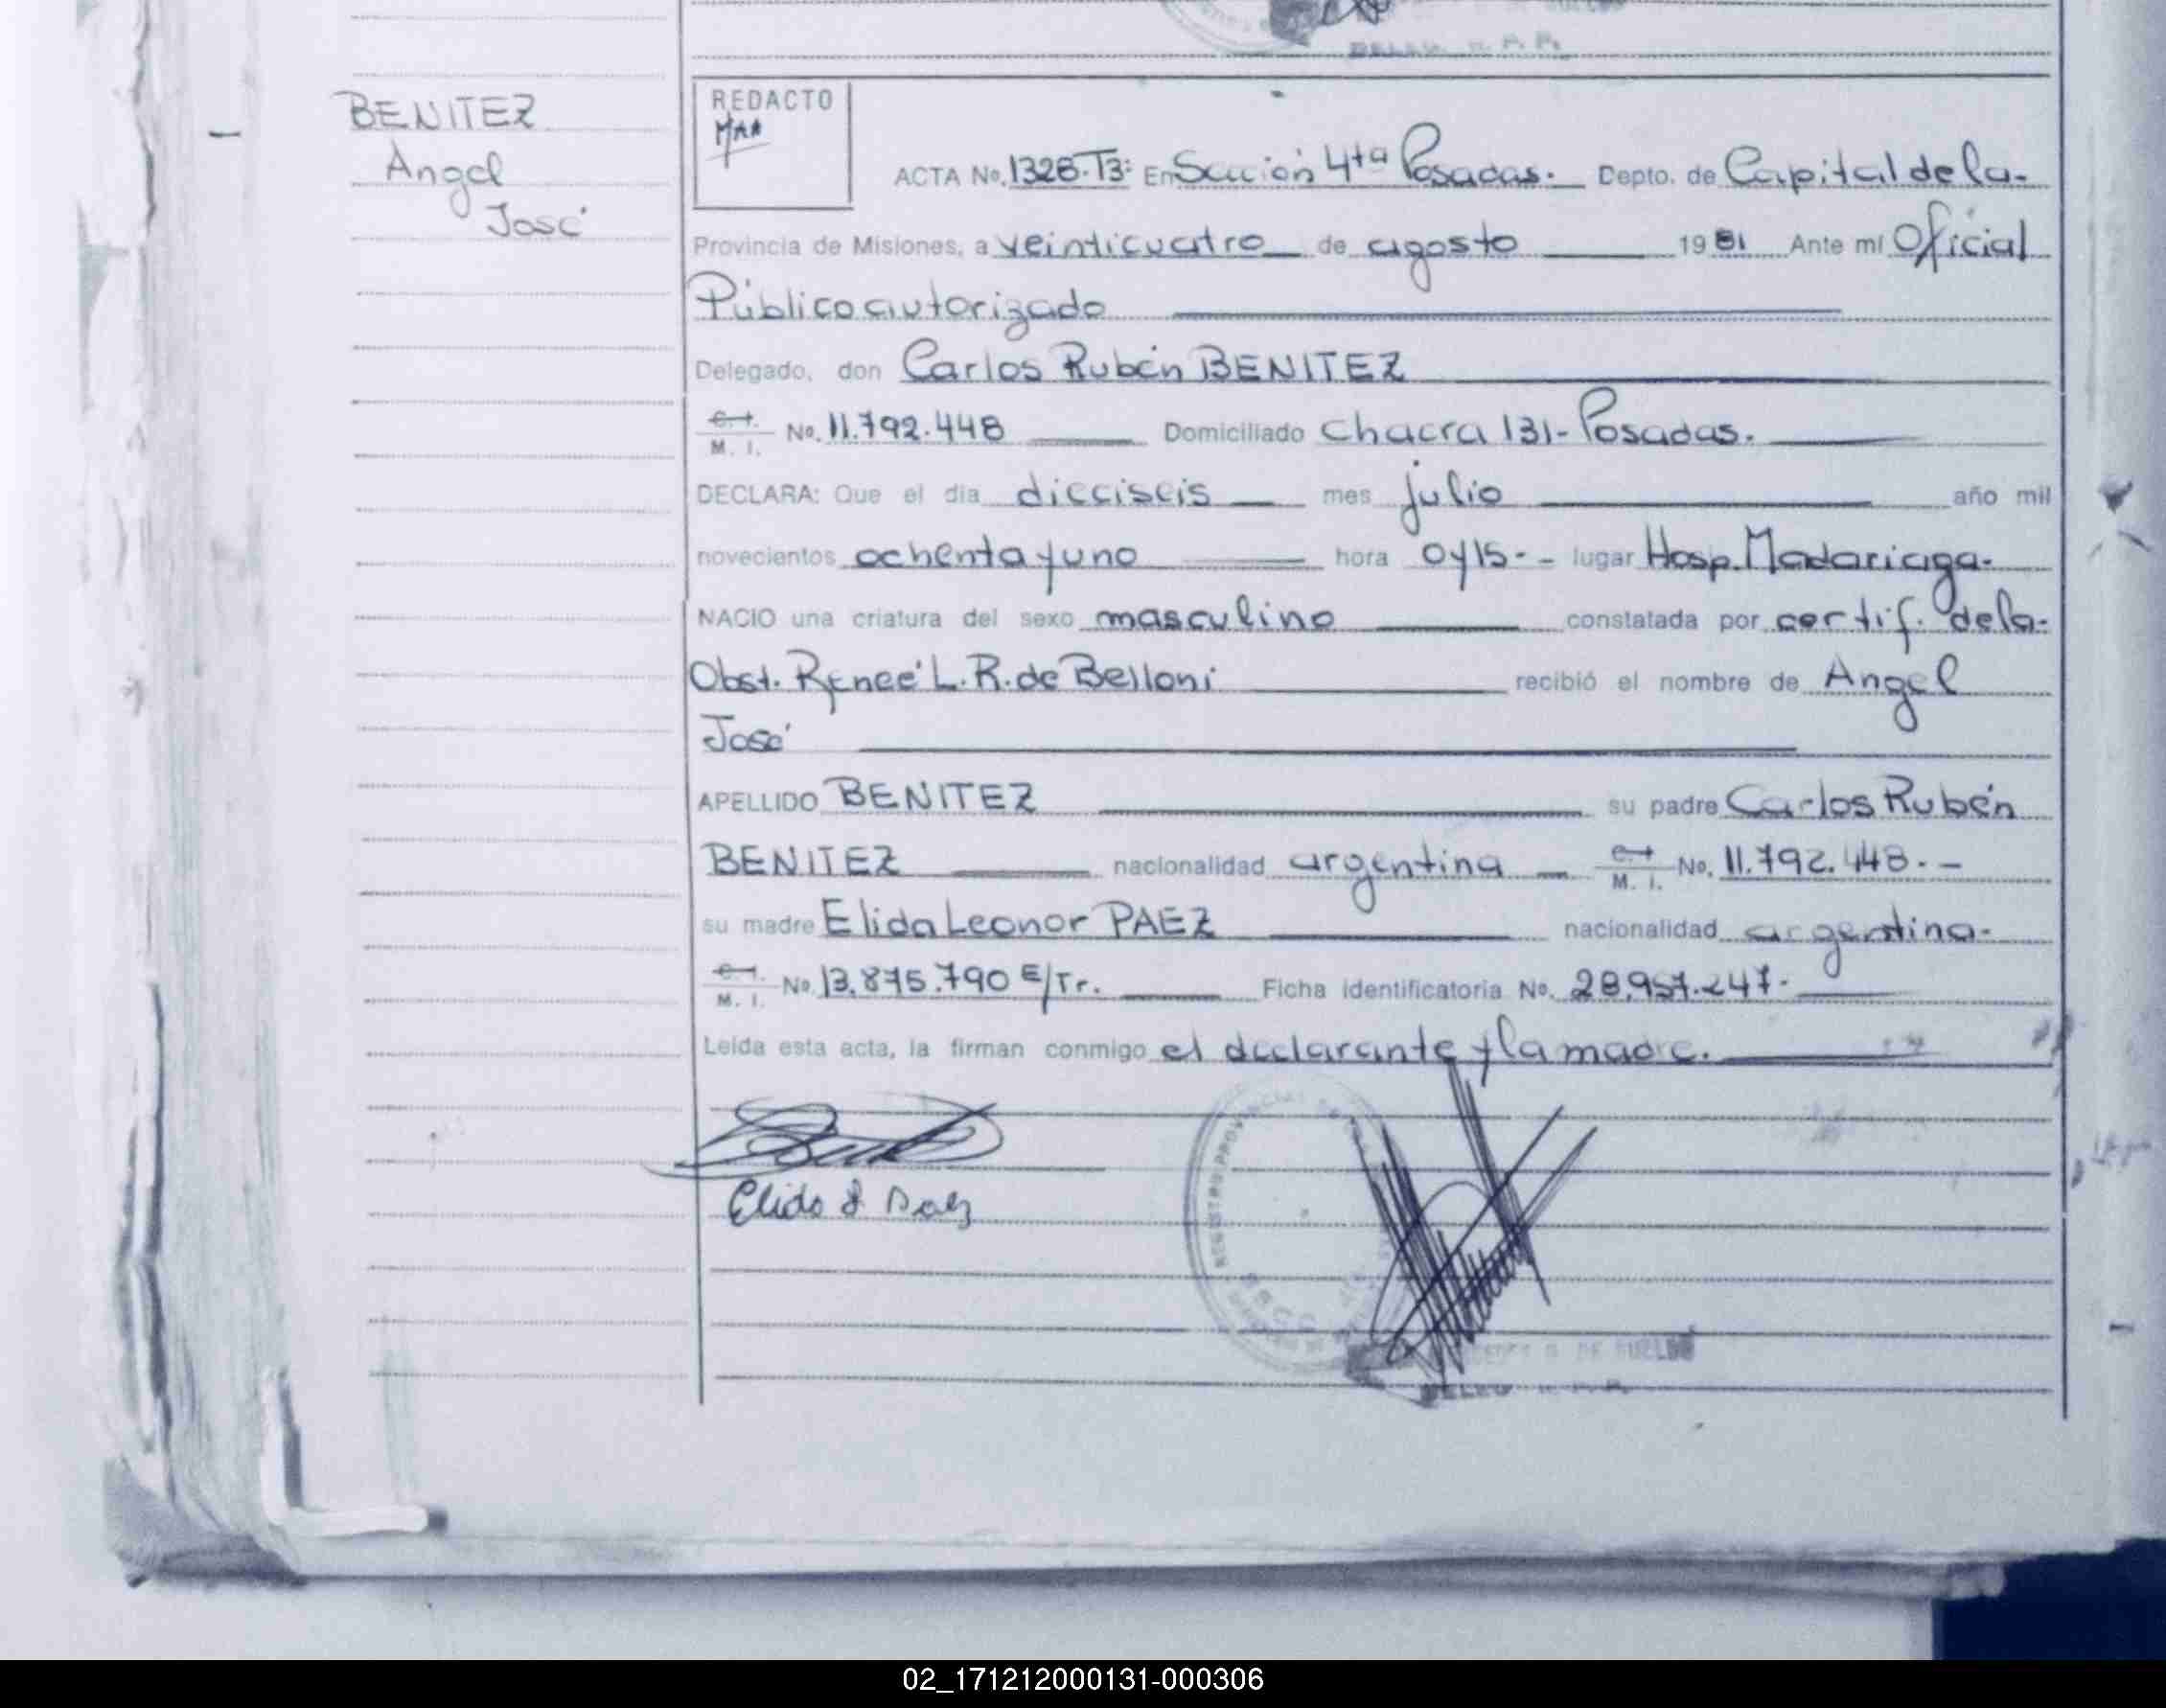 BENITEZ
Angel
José
REDACTO
ACTA No. 1328.T3: En Sección 4ta Posadas. Depto. de Capital de la-
Provincia de Misiones, a veinticuatro de agosto 1981 Ante mí Oficial
Público autorizado
Delegado, don Carlos Rubén BENITEZ
C. I. M. I. No. 11.792.448 Domiciliado Chacra 131-Posadas.
DECLARA: Que el día dieciseis mes julio año mil
novecientos ochenta y uno hora 0y15.- lugar Hosp. Madariaga.
NACIO una criatura del sexo masculino constatada por certif. de la-
Obst. Reneé L. R. de Belloni recibió el nombre de Angel
José
APELLIDO BENITEZ su padre Carlos Rubén
BENITEZ nacionalidad argentina C. I. M. I. No. 11.792.448.-
su madre Elida Leonor PAEZ nacionalidad argentina-
C. I. M. I. No. 13.875.790 E/Tr. Ficha identificatoria No. 28.957.247-
Leída esta acta, la firman conmigo el declarante y la madre.
REGISTRO PROVINCIAL DE LAS
DE SUELDO
DELEG. R. P. P.
02_171212000131-000306